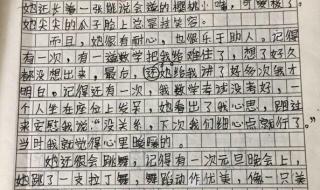 她还长着一张能说会道的樱桃小嘴，可爱极了。
她尖尖的瓜子脸上总是挂着笑容。
而且，她很有耐心，也很乐于助人。记得
有一次，有一道数学把我给难住了，想了好久
都没想出来，最后，还她给我讲了好多次我才
明白。记得还有一次，我数学考试没考好，一
个人坐在座位上发呆，她看出了我心思，跑过
来安慰我说：“没关系，下次我们细心点就行了。”
当时我就觉得心里暖暖的。
她还很会跳舞，记得有一次元旦晚会上，
她跳了一支拉丁舞，舞蹈动作优美，像一只美